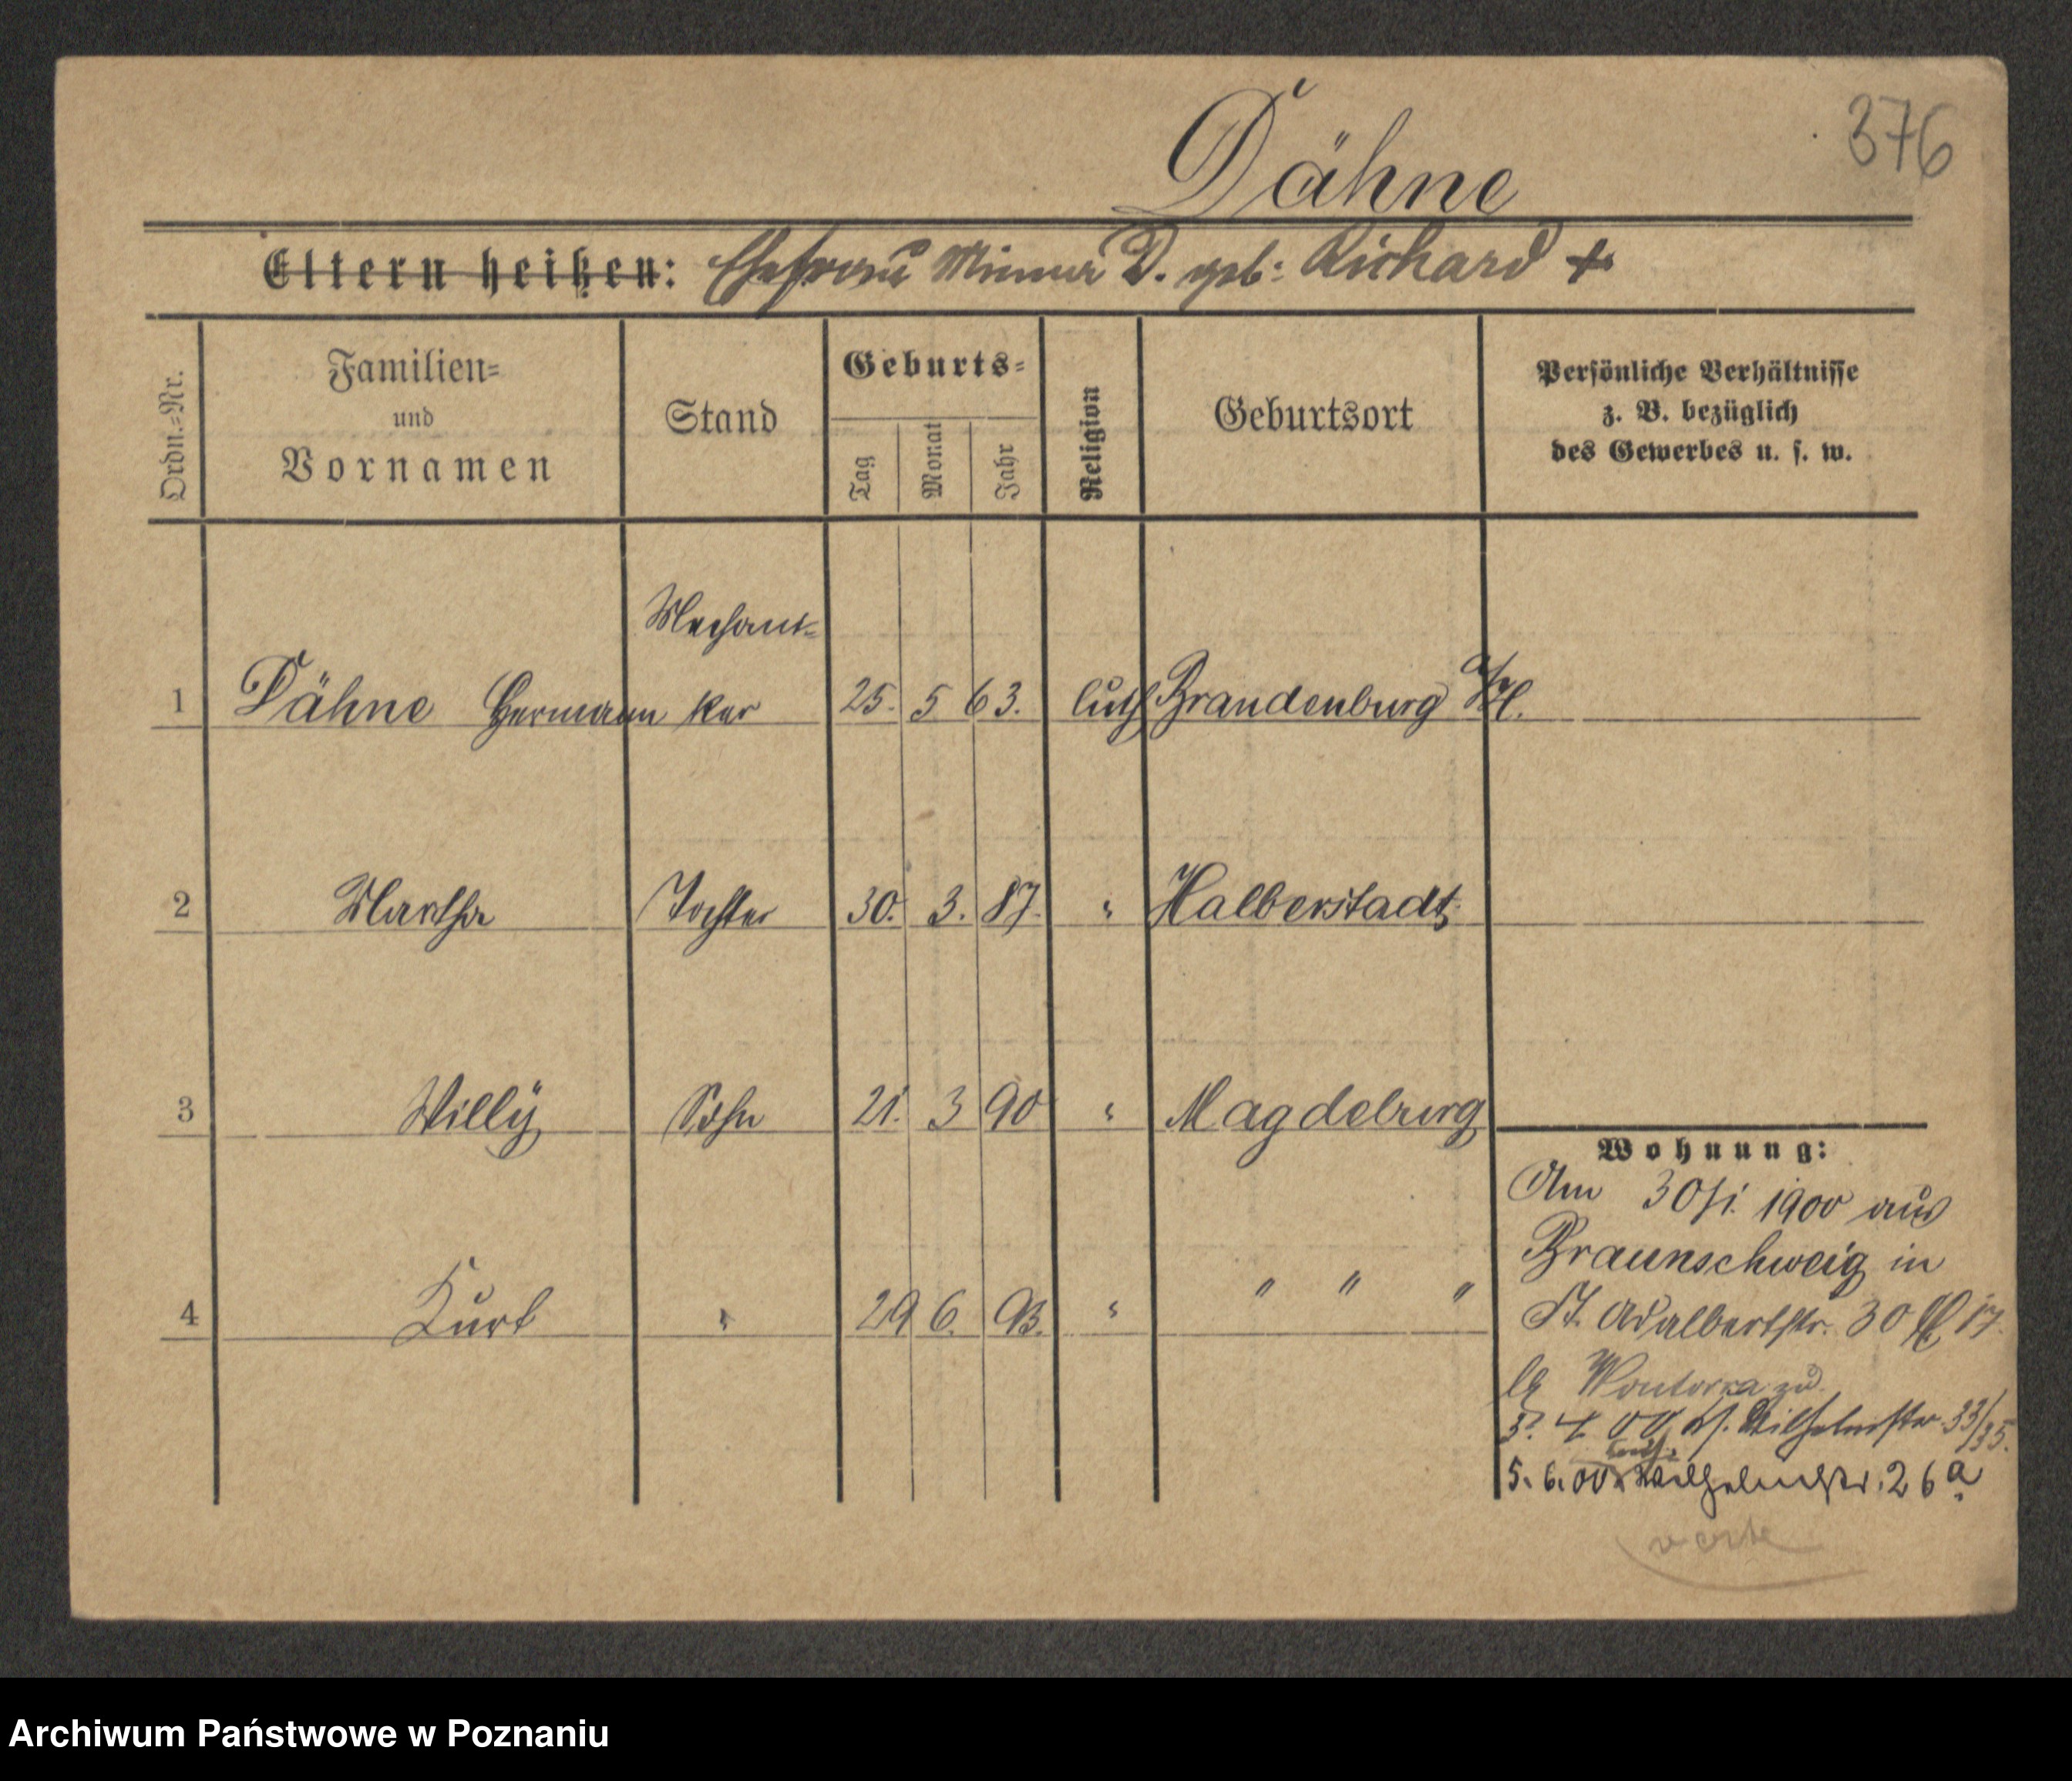 376
Dähne
Eltern heißen: Ehefrau Minna D. geb: Richard +
Ordn.=Nr.
Familien=
und
Vornamen
Stand
Geburts=
Tag
Monat
Jahr
Religion
Geburtsort
Persönliche Verhältnisse
z. B. bezüglich
des Gewerbes u. s. w.
Mechani=
1 Dähne Hermann ker 25. 5 63. luth Brandenburg a/H.
2 Martha Tochter 30. 3. 87. " Halberstadt
3 Willy Sohn 21. 3 90 " Magdeburg
Wohnung:
Am 30/1. 1900 aus
Braunschweig in
4 Kurt " 29 6. 93. " " " "
St. Adalbertstr. 30
Wontorra zu
3. 4 00 Wilhelmstr. 33/35.
5. 6. 00 Wilhelmstr. 26a
verte
Archiwum Państwowe w Poznaniu